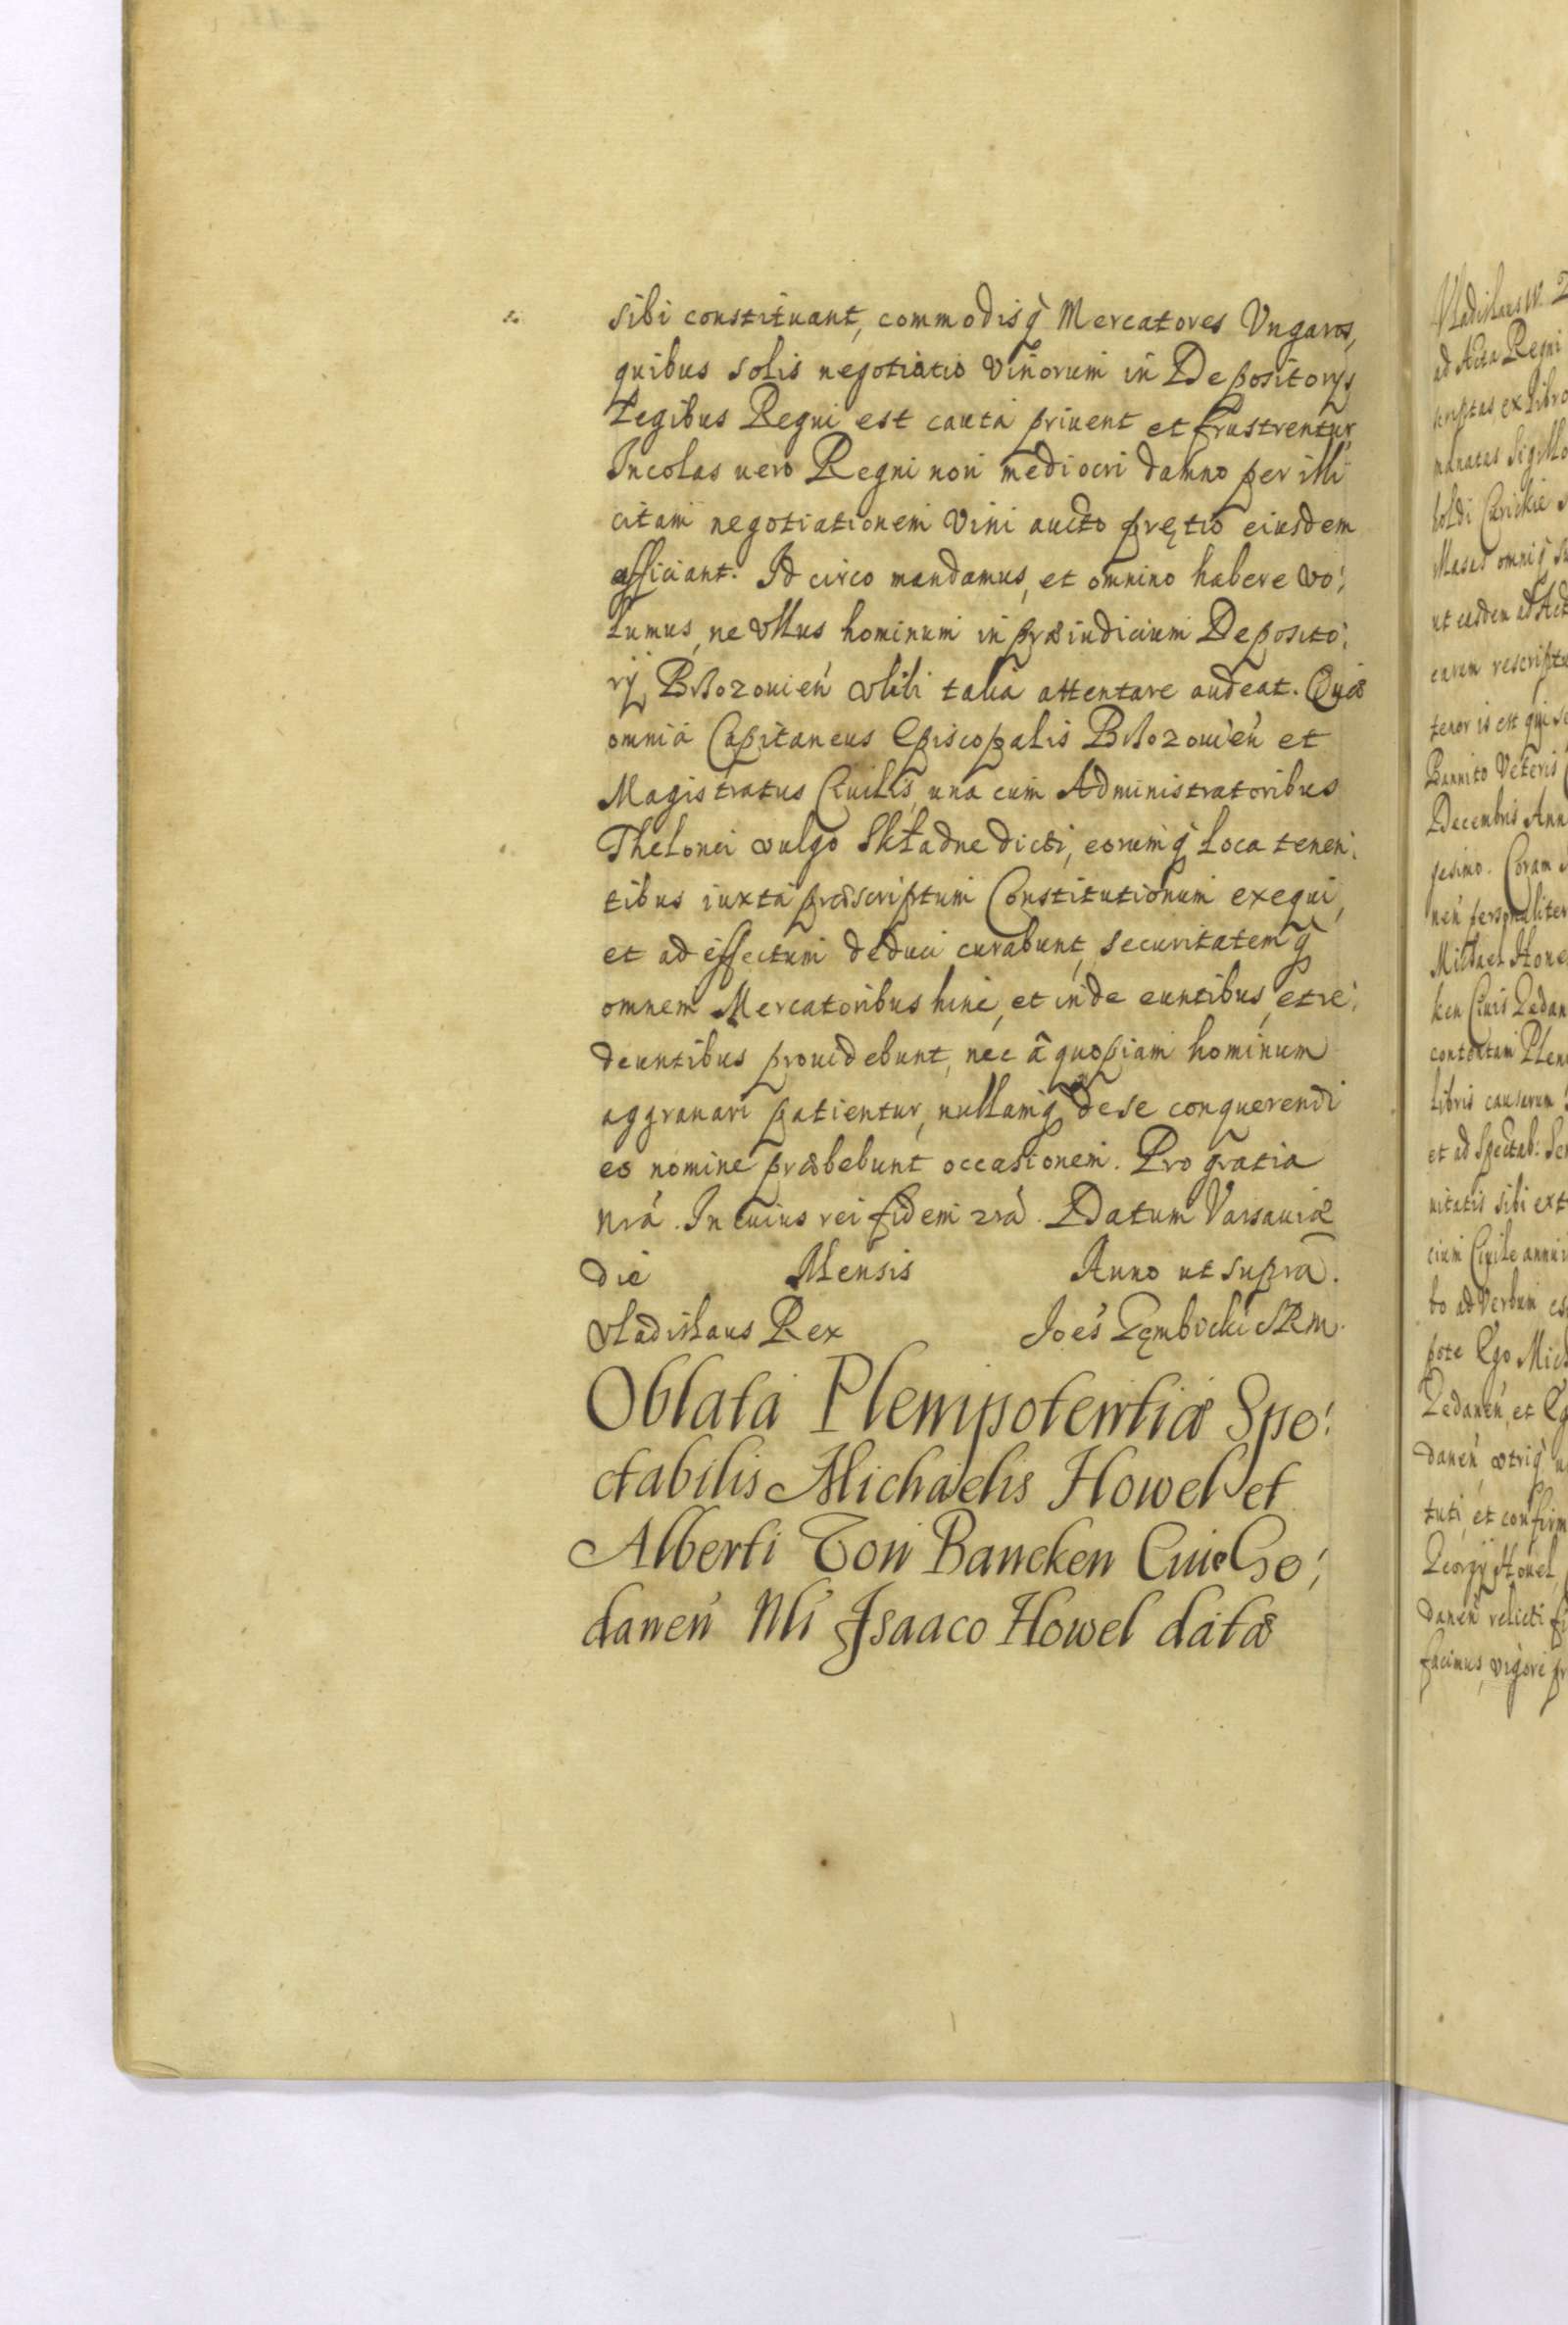 sibi constituant, commodisq́ Mercatores Vngaros,
quibus solis negotiatio vinorum in Depositorijs
Legibus Regni est cauta priuent et frustrentur,
Incolas uero Regni non mediocri damno per illi
citam negotiationem vini aucto prętio eiusdem
afficiant. Id circo mandamus, et omnino habere vo:
lumus, ne vllus hominum in præiudicium Deposito:
rij Brzozouień vlibi talia attentare audeat. Quæ
omnia Capitaneus Episcopalis Brzozouień et
Magistratus Ciuilis, una cum Administratoribus
Thelonei vulgo Składne dicti, eorumq́ Loca tenen:
tibus iuxta præscriptum Constitutionum exequi,
et ad effectum deduci curabunt, securitatemq́
omnem Mercatoribus hinc, et inde euntibus, et re:
deuntibus prouidebunt, nec â quopiam hominum
aggrauari patientur, nullamq́ de se conquerendi
eo nomine præbebunt occasionem. Pro gratia
nrá. In cuius rei fidem 2rá. Datum Varsauiæ
die Mensis Anno ut supra.
Vladislaus Rex Joes Gembicki SRM.
Oblata Plenipotentiæ Spe:
ctabilis Michaelis Howel et
Alberti Von Bancken Ciuis Ge:
daneń Nli Isaaco Howel datæ
Vladislaus IV.
ad Acta Regni
scriptas, ex Libro
manatas Sigillo
ut easdem ad Act
earum rescriptu
tenor is est qui se
Bannito Veteris
Decembris Ann
gesimo. Coram
neń personaliter
Michael Howe
ken Ciuis Gedan
contentam Plen
Libris causarum
et ad Spectab: Se
nitatis sibi ext
cium Ciuile annu
to ad Verbum es
pote Ego Mich
Gedaneń, et Eg
daneń, vtriq́ u
tuti, et confirm
Georgij Howel,
daneń relicti fi
facimus, vigore pr